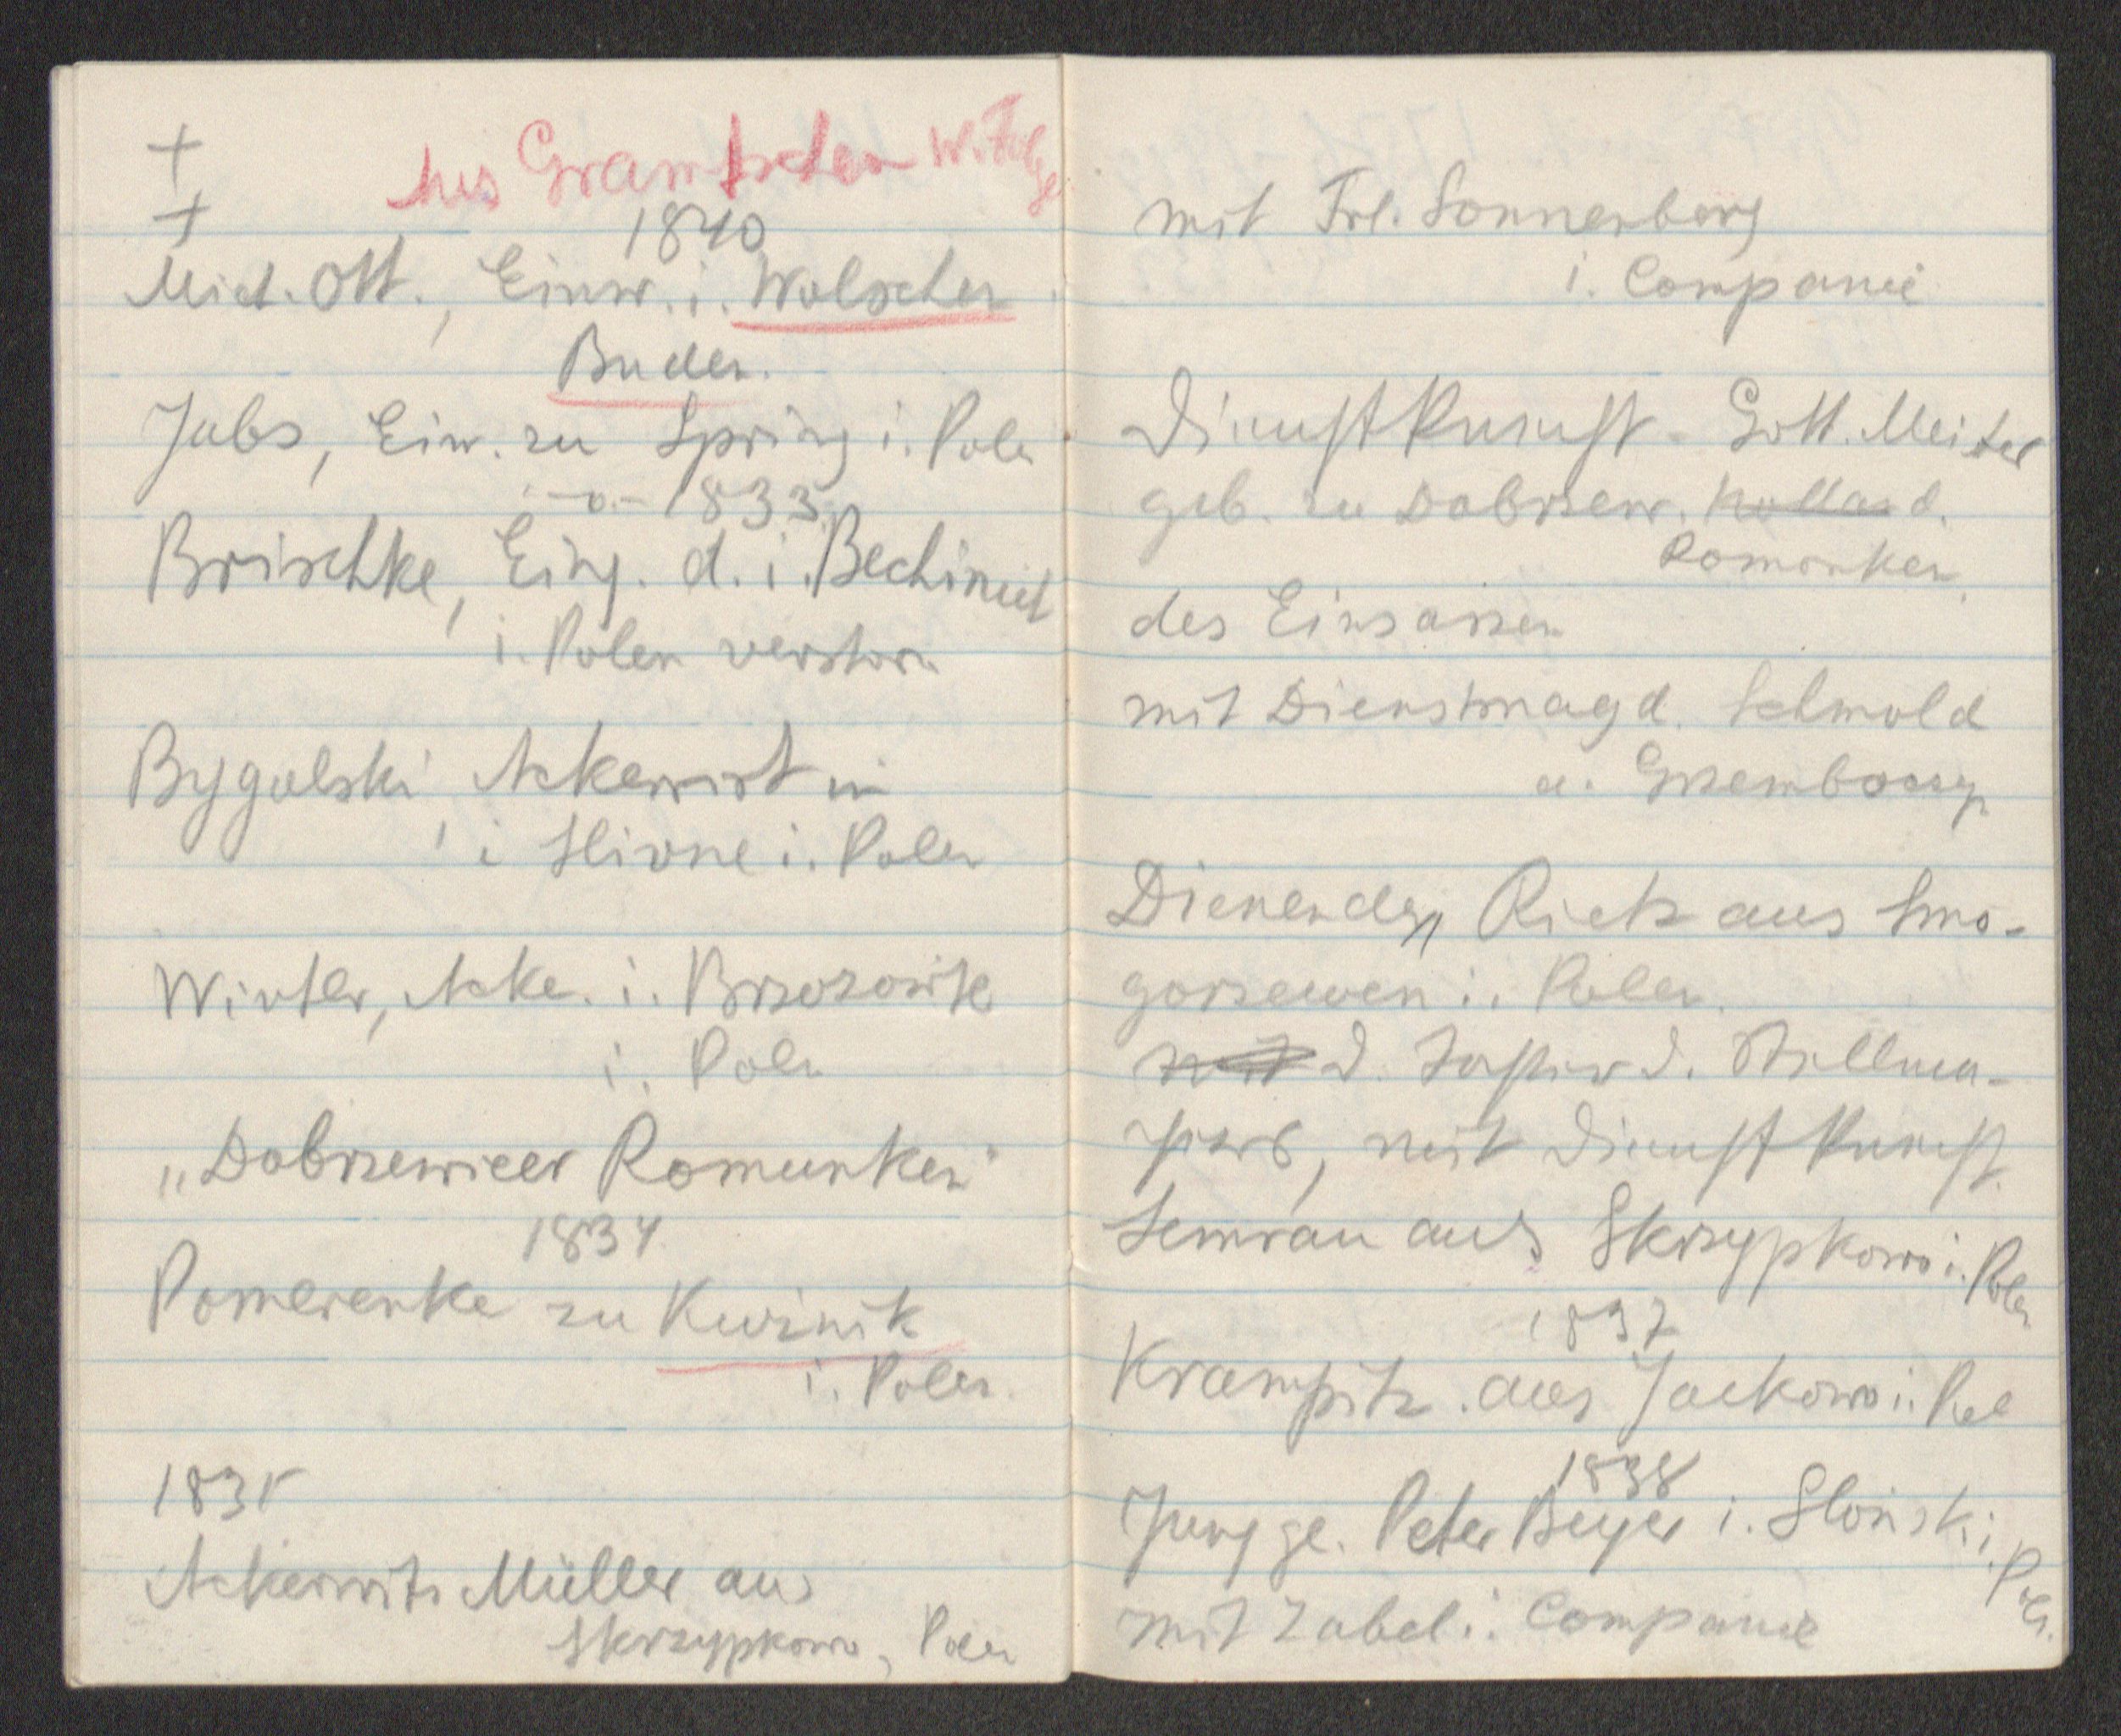 †
aus Gramtschen W. Folge
†
1840
Mich. Ott., Einw. i. Wolscher
Buden.
Jabs, Einw. zu Spring i. Polen
-o- 1833
Brischke, Eing. d. i.
i. Polen verstorn
Bygalski, Ackerwirt in
i Slivne i. Polen
Winter, Acke. i. Brzozowke
i. Polen
„Dobrzewicer Romunken"
1834
Pomerenke zu Kusinik
i. Polen
1835
Ackerwirts Müller aus
Skrzypkowo, Polen
mit Frl. Sonnenberg
i. Companie
Dienstkunst - Gott. Meister
geb. zu Dobrzew. Holland.
Romonken
des Einsassen
mit Dienstmagd. Schmold
a. Grzembocsyn
Dienender Rietz aus Smo-
gorzewen i. Polen.
mit d.
mit Dienstkunst.
Semrau aus Skrzypkowo i. Polen
1837
Krampitz. aus Jackowo i. Pol
1838
Jungge. Peter Beyer i. Slonsk i. Pol.
mit Zabel i. Companie